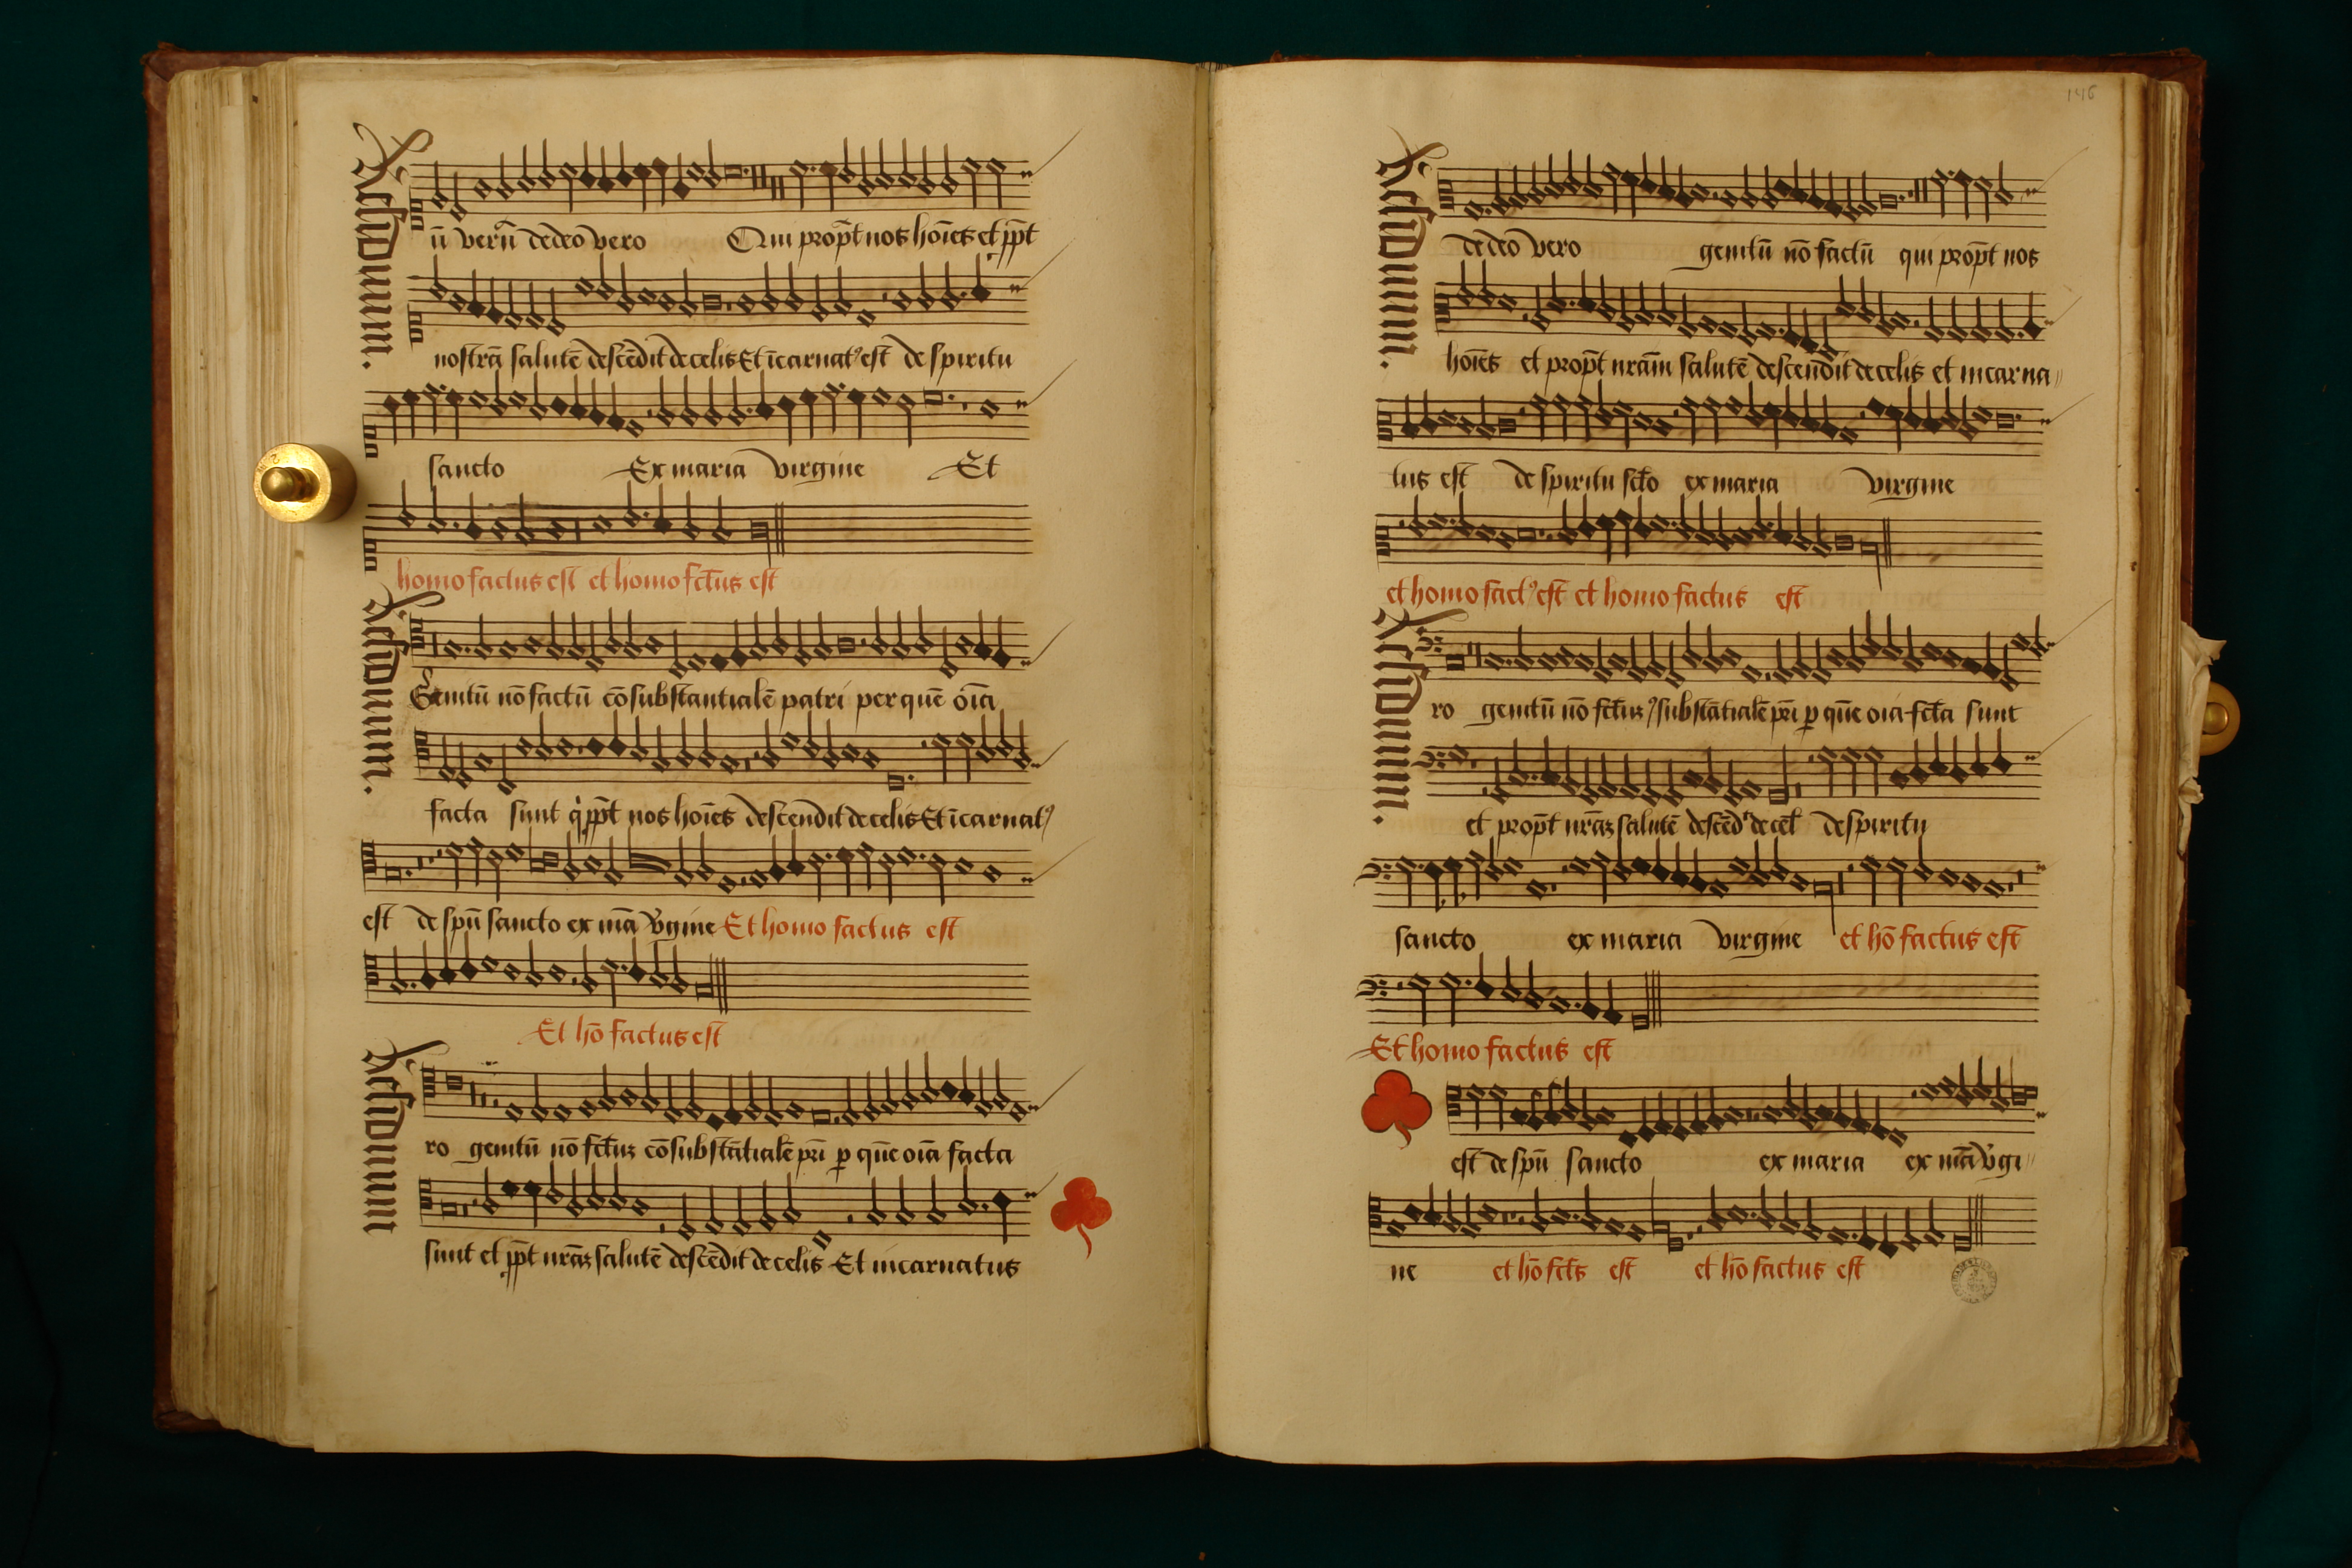 Residuum.
ū verū de deo vero Qui propt̄ nos hoīes et ppt̄
nostrā salutē descēdit de celis Et īcarnatꝰ est de spiritu
sancto Ex maria virgine Et
homo factus est et homo fct̄us est
Residuum.
Genitū nō factū cōsubstantialē patri per quē oīa
facta sunt q̇ ppt̄ nos hoīes descendit de celis Et īcarnatꝰ
est de spū sancto ex mā v̄gine Et homo factus est
Et hō factus est
Residuum
ro genitū nō fct̄uꝫ cōsubstātialē pri̅ ꝑ quē oīa facta
sunt et ppt̄ nrāꝫ salutē descēdit de celis Et incarnatus
146
Residuum.
de deo vero genitū nō factū qui propt̄ nos
hoīes et propt̄ nrām salutē descendit de celis et incarna
tus est de spiritu sct̄o ex maria virgine
et homo factꝰ est et homo factus est
Residuum.
ro genitū nō fct̄uꝫ ꝯsubstātialē pri̅ ꝑ quē oīa fct̄a sunt
et propt̄ nrāꝫ salutē descēdt̄ de cel̄ de spiritu
sancto ex maria virgine et hō factus est
Et homo factus est
est de spū sancto ex maria ex mā v̄gi
ne et hō fct̄s est et hō factus est